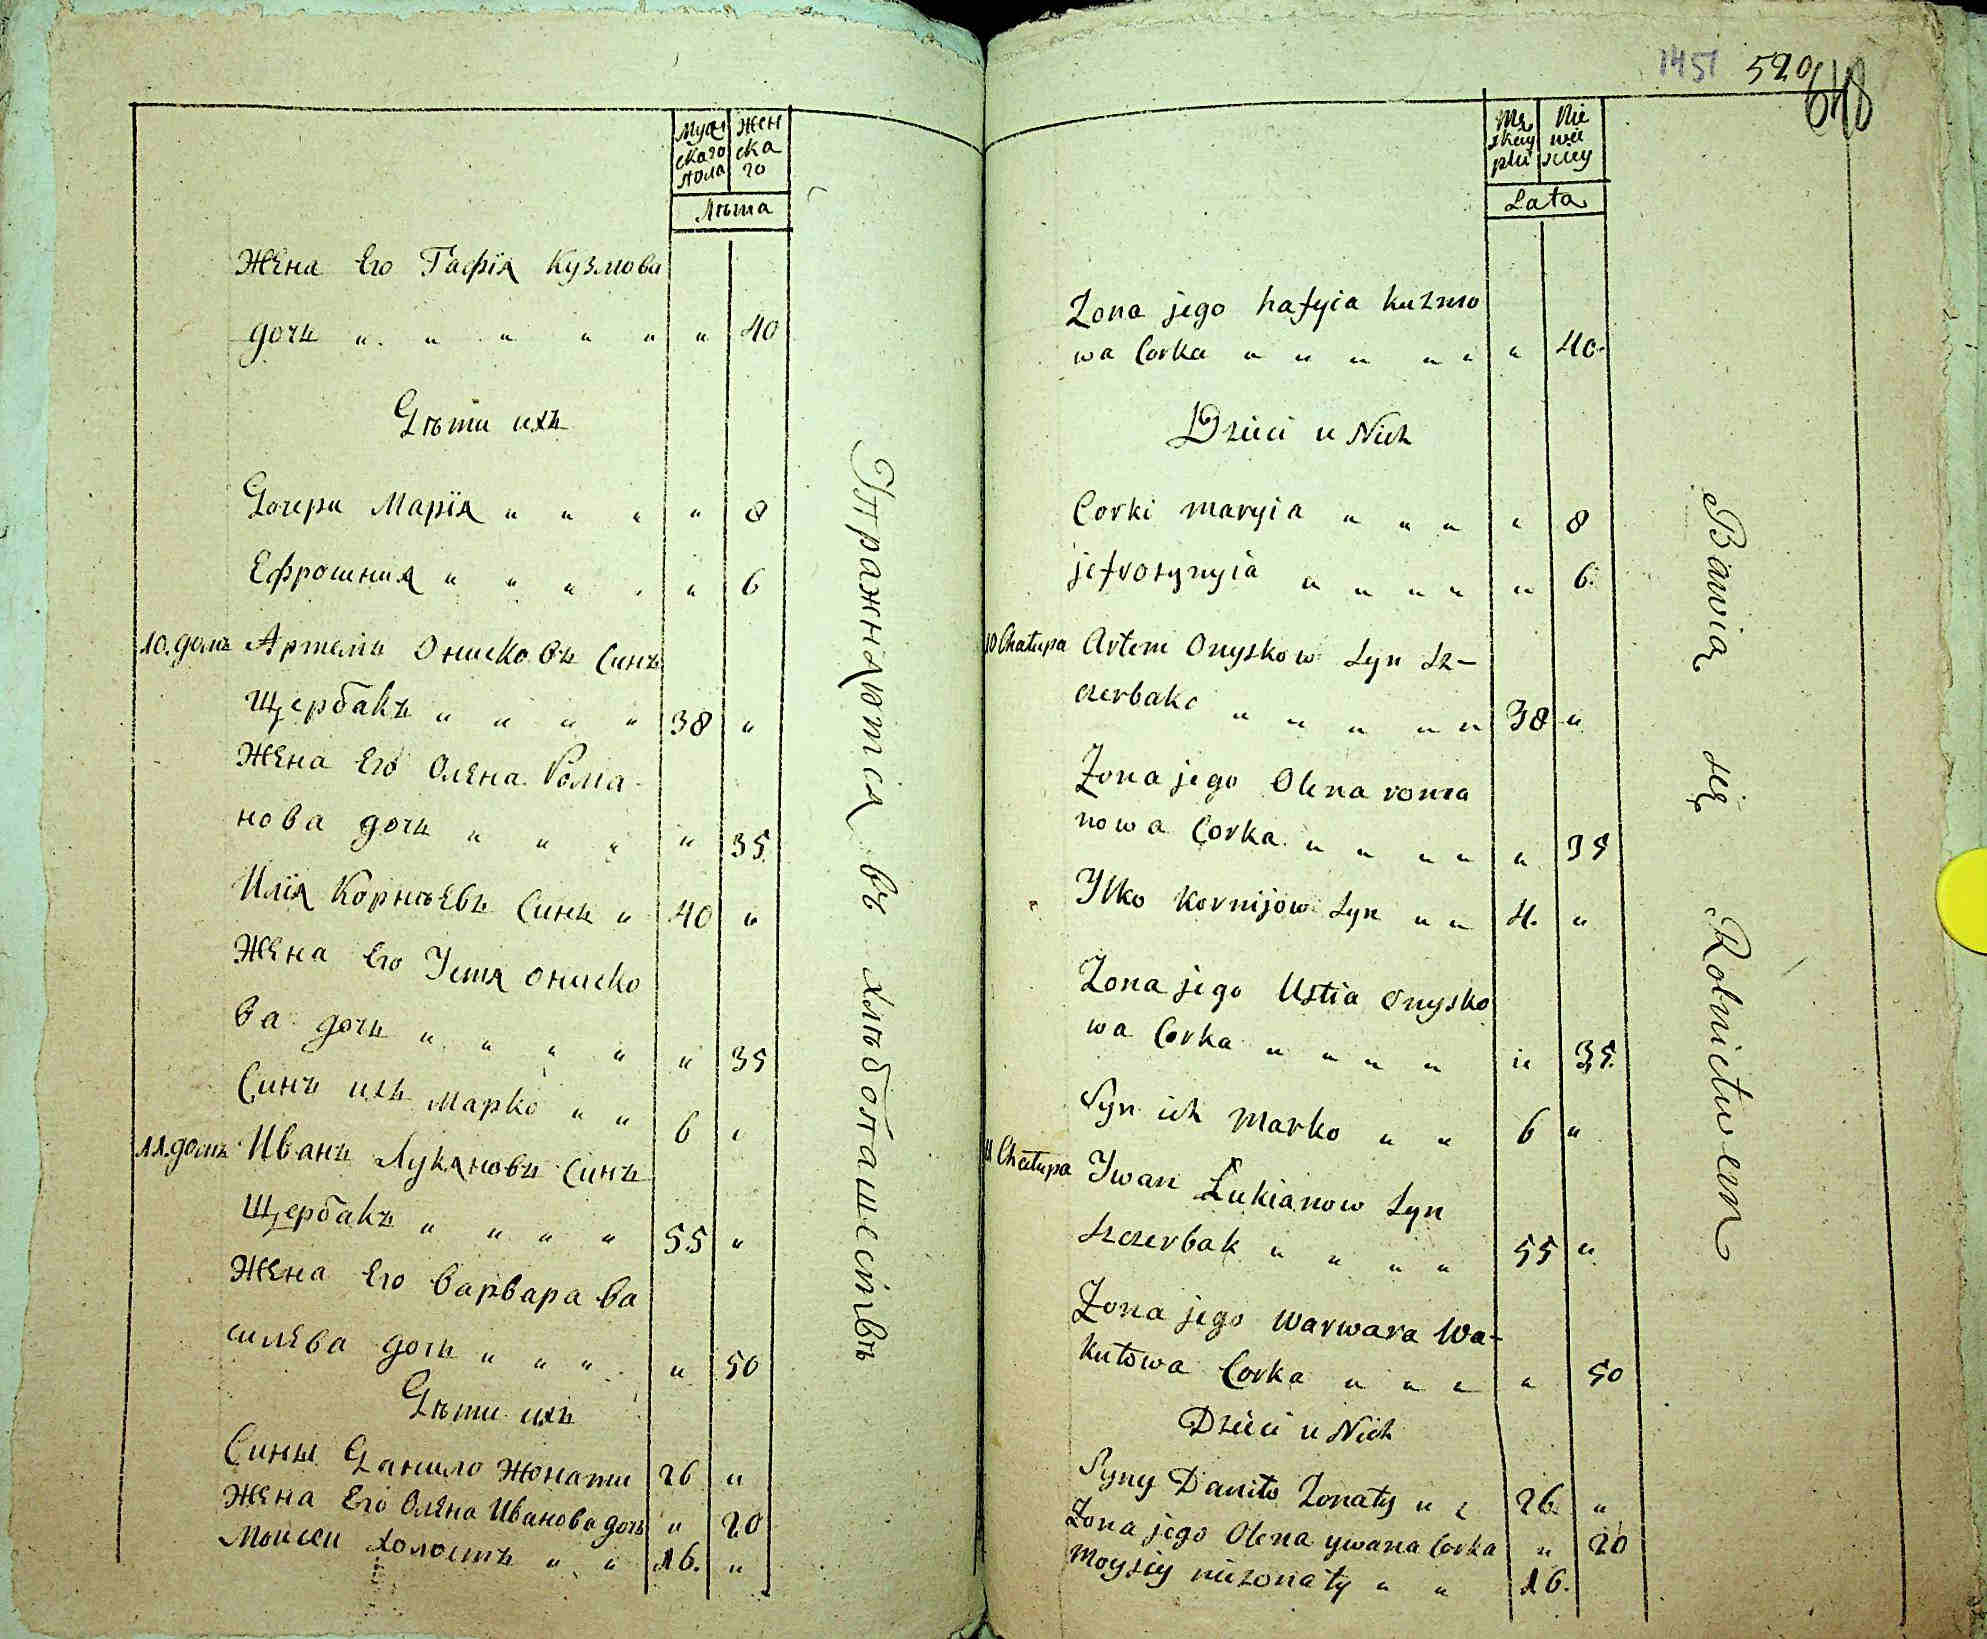 Муж
скаго
пола
Жен
ска
го
Лѣта
Жена Его Гафія Кузмова
дочь " " " " " " 40
Дѣти ихъ
Дочери Марія " " " " 8
Ефросинія " " " " " 6
10.домъ Артемъ Онисковъ Синъ
Щербакъ " " " " 38 "
Жена Его Олена Рома
нова дочь " " " " 35
Илія Корнѣевъ Синъ " 40 "
Жена Его Устя Ониско
ва дочь " " " " " 35
Синъ ихъ Марко " " 6 "
11.домъ Иванъ Лукяновъ Синъ
Щербакъ " " " " 55 "
Жена Его Варвара Ва
силева дочь " " " " 50
Дѣти ихъ
Сины Данило Жонати 26 "
Жена Его Олена Иванова дочь " 20
Моисеи холостъ " " 16. "
Упражняются въ хлѣбопашествѣ
1451 520
648
Mę
skiey
płci
Nie
wie
sciey
Lata
Zona jego hafyia kuzmo
wa Corka " " " " " " 40.
Dzieci u Nich
Corki maryia " " " " 8
jefrosynyia " " " " " 6.
10 Chałupa Artem Onyskow Syn Sz-
czerbak " " " " " 38 "
Zona jego Olena roma
nowa Corka " " " " " 35
Ilko Kornijow Syn " " 4. "
Zona jego Ustia Onysko
wa Corka " " " " " 35.
Syn ich Marko " " 6 "
11 Chałupa Iwan Łukianow Syn
Szczerbak " " " " 55 "
Zona jego Warwara Wa-
kułowa Corka " " " " 50
Dzieci u Nich
Syny Daniło Zonaty " " 26. "
Zona jego Olena ywana Corka " 20
Moysiy niezonaty " " 16.
Bawią się Rolnictwem